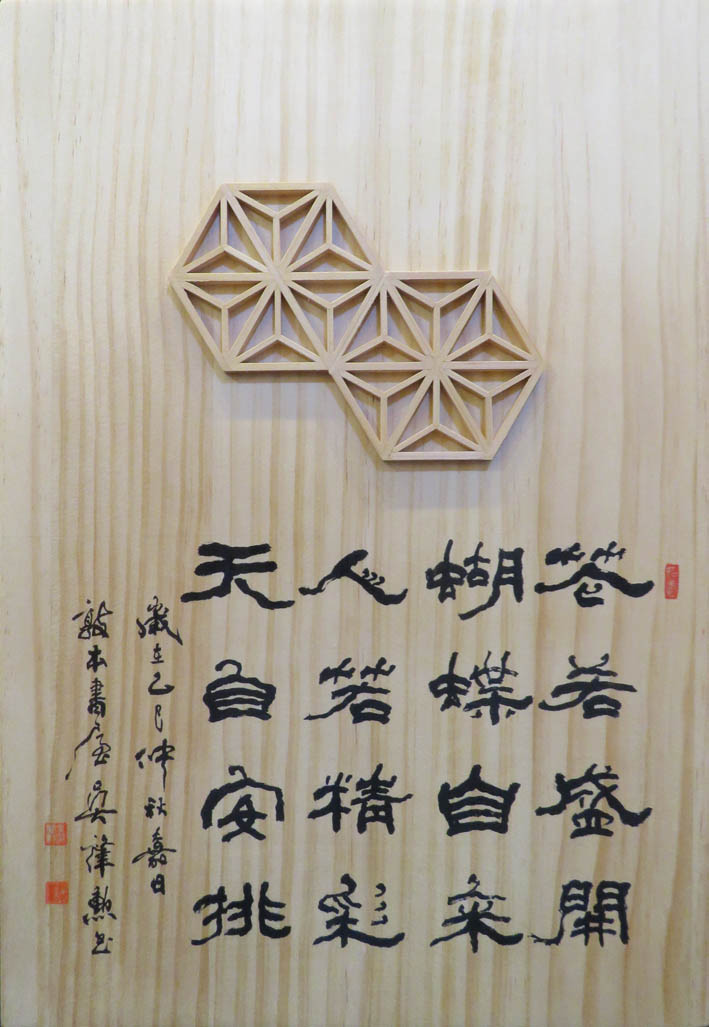 花若盛開
蝴蝶自來
人若精彩
天自安排
歲在乙巳仲秋嘉日
敲木書房吳肇勲書